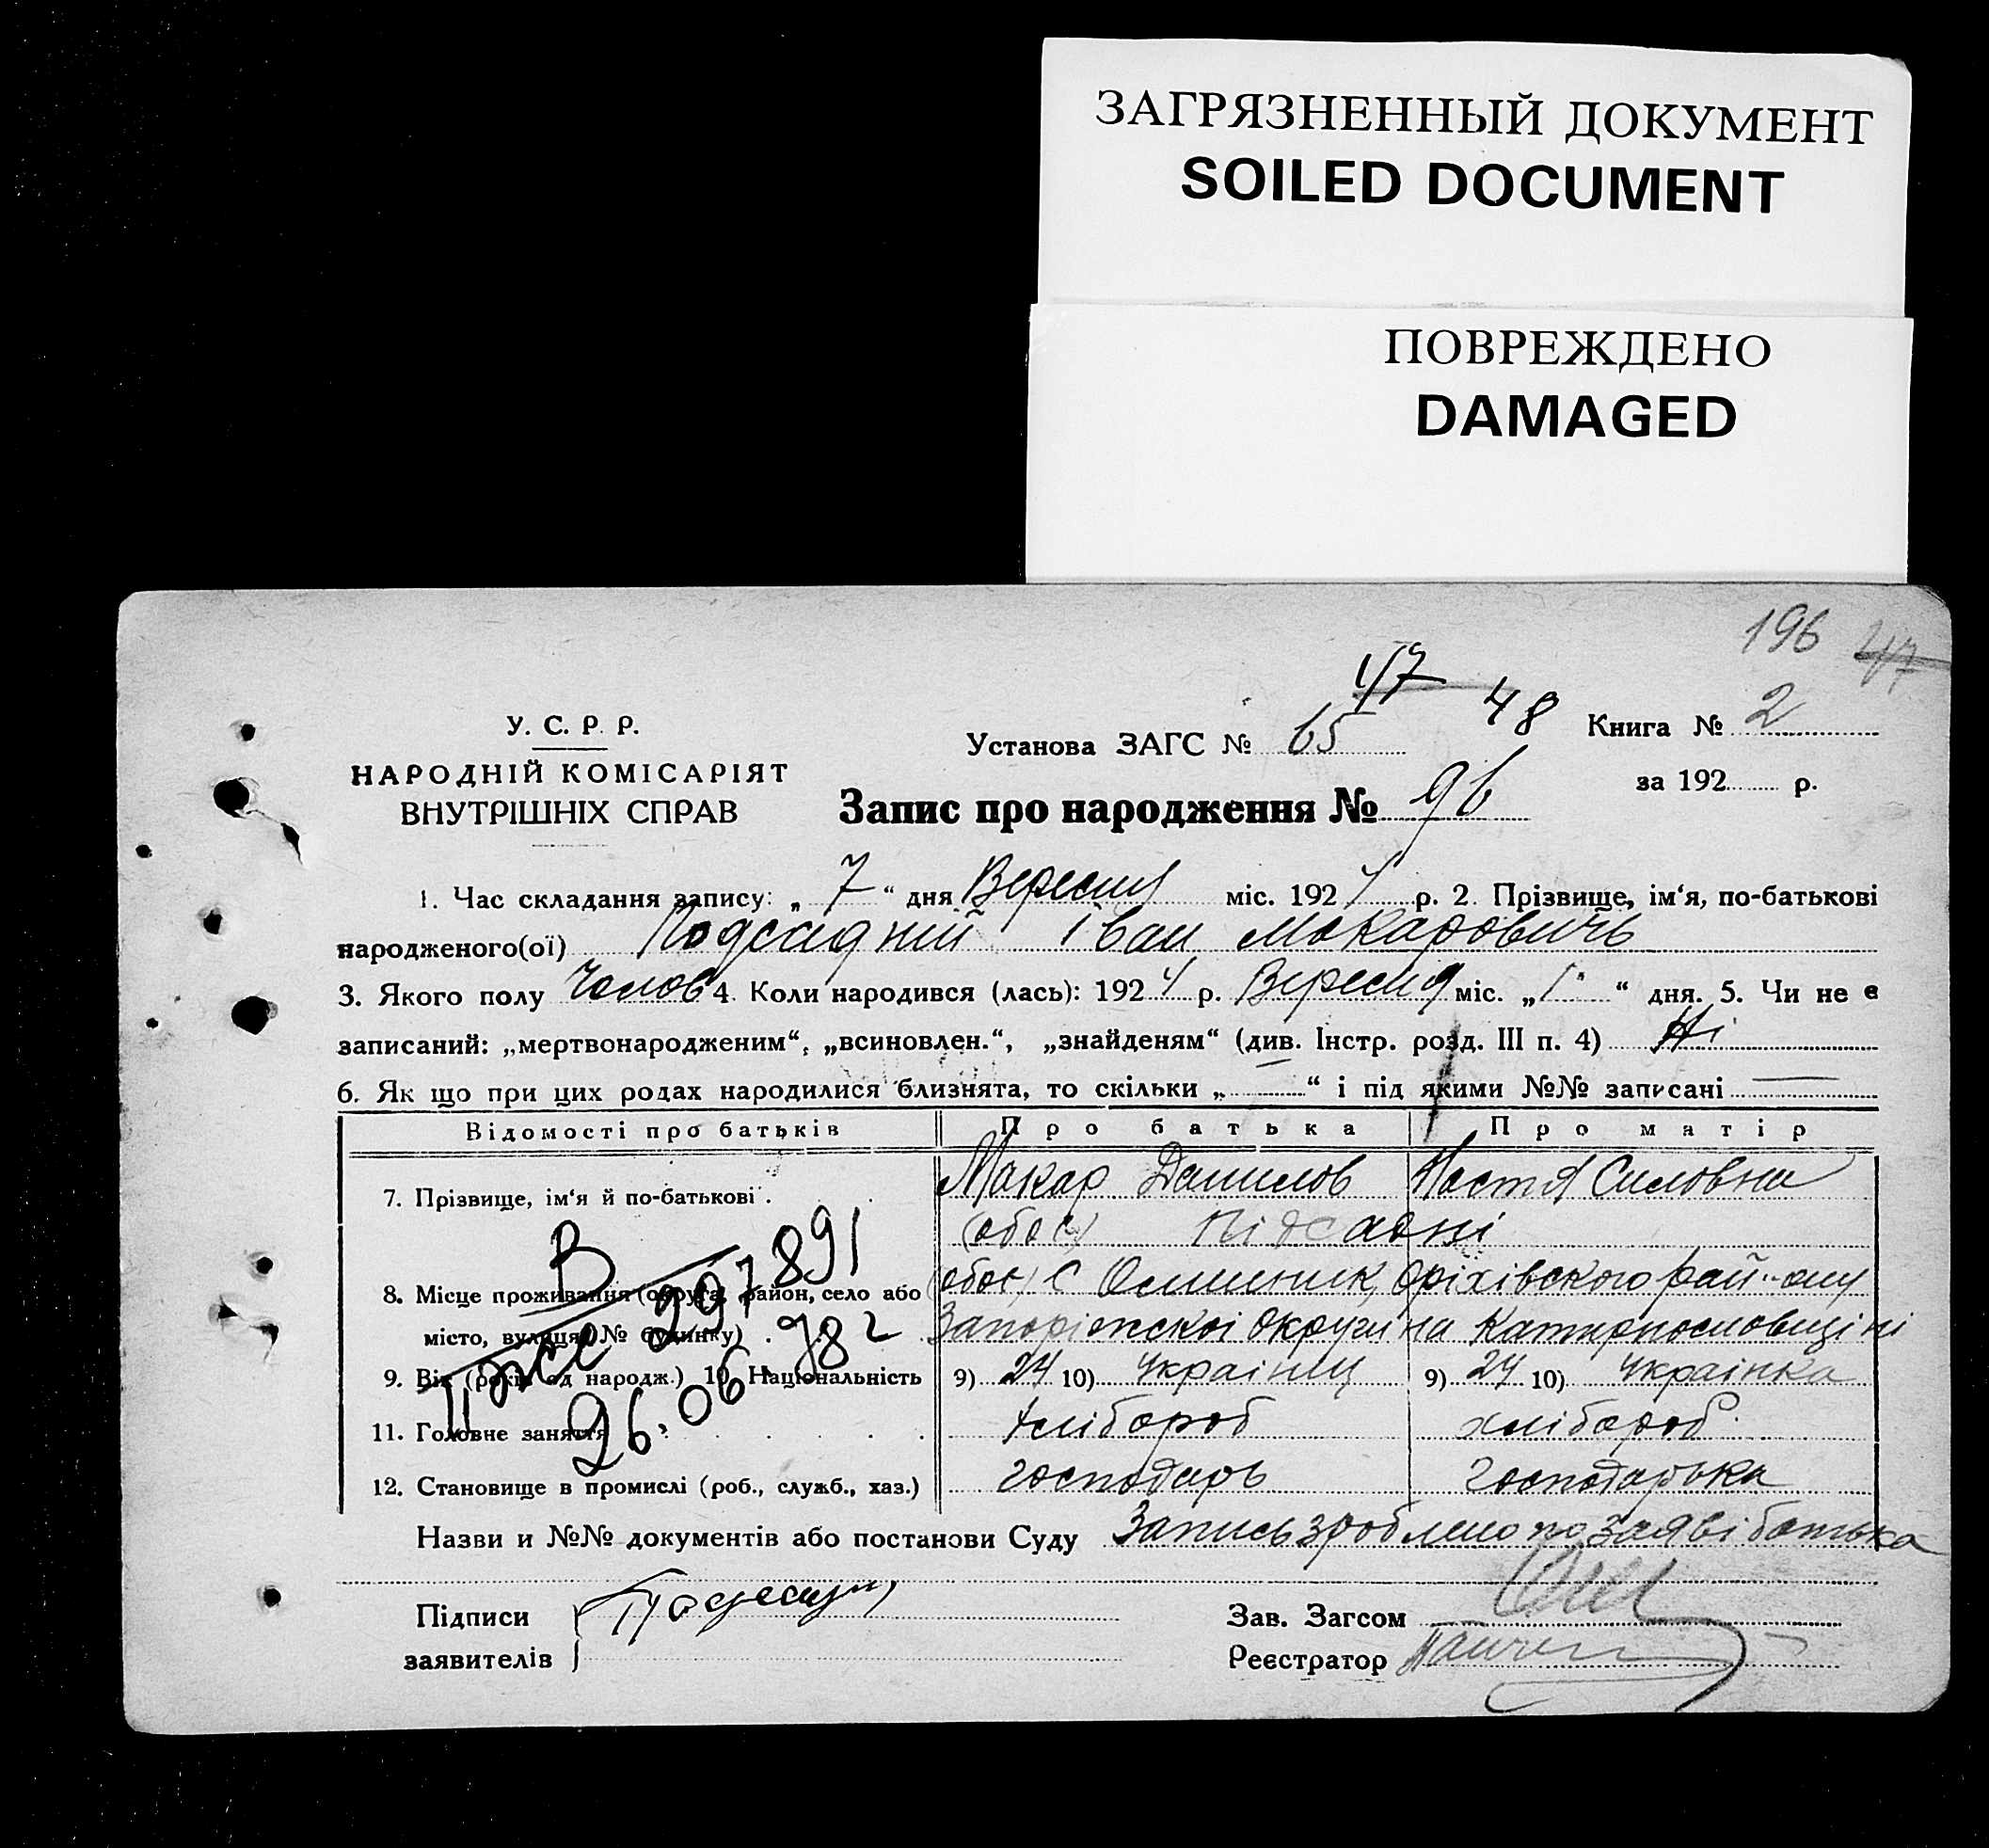 ЗАГРЯЗНЕННЫЙ ДОКУМЕНТ
SOILED DOCUMENT
ПОВРЕЖДЕНО
DAMAGED
196 47
47 48
У. С. Р. Р.
НАРОДНІЙ КОМІСАРІЯТ
ВНУТРІШНІХ СПРАВ
Установа ЗАГС № 65
Книга № 2
за 192 р.
Запис про народження № 96
1. Час складання запису: „ 7 “ дня Вересня міс. 1924 р. 2. Прізвище, ім‘я, по-батькові
народженого(ої) Подсадний Іван Макаровичь
3. Якого полу Чолов 4. Коли народився (лась): 1924 р. Вересня міс. „ 1 “ дня. 5. Чи не є
записаний: „мертвонародженим“, „всиновлен.“, „знайденям“ (див. Інстр. розд. III п. 4) Ні
6. Як що при цих родах народилися близнята, то скільки „ — “ і під якими №№ записані —
Відомості про батьків Про батька Про матір
7. Прізвище, ім‘я й по-батькові Макар Данилов Настя Силовна
(обоє) Підсадні
8. Місце проживання (округа, район, село або (обоє) с Оріхівского район-ану
місто, вулиця, № будинку) Запоріжскоі Округи на Катиринославщіні
9. Вік (років од народж.) 10. Національність 9) 24 10) Украінец 9) 24 10) Украінка
11. Головне заняття Хлібороб хлібороб
12. Становище в промислі (роб., служб., хаз.) господарь господарька
В
297891
26.06.982
Назви и №№ документів або постанови Суду Запись зроблено по заяві батька
Підписи
заявителів
Зав. Загсом
Реєстратор